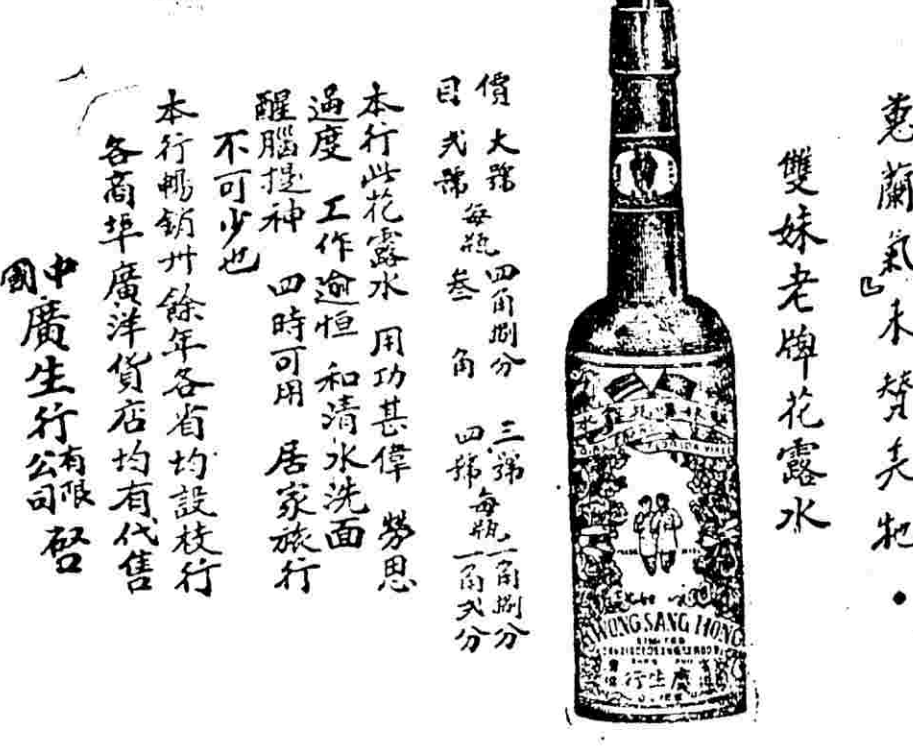 蕙蘭氣』未贊夫
雙妹老牌花露水
價 大號 每瓶 四角捌分 三號 每瓶 一角捌分
目 弍號 叁角 四號 一角弍分
本行此花露水 用功甚偉 勞思
過度 工作逾恒 和清水洗面
醒腦提神 四時可用 居家旅行
不可少也
本行暢銷卅餘年各省均設枝行
各商埠廣洋貨店均有代售
中國廣生行有限公司 啓
KWONG SANG HONG
LIMITED
行生廣